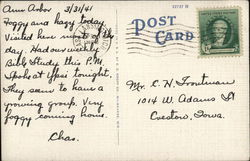 Ann Arbor 3/31/41
Foggy and hazy today.
Visited here most of the
day. Had our weekly
Bible Study this P.M.
Spoke at Ypsi tonight.
They seem to have a
growing group. Very
foggy coming home.
Chas.
POST
CARD
Mr. C. H. Troutman
1014 W. Adams St
Creston, Iowa.